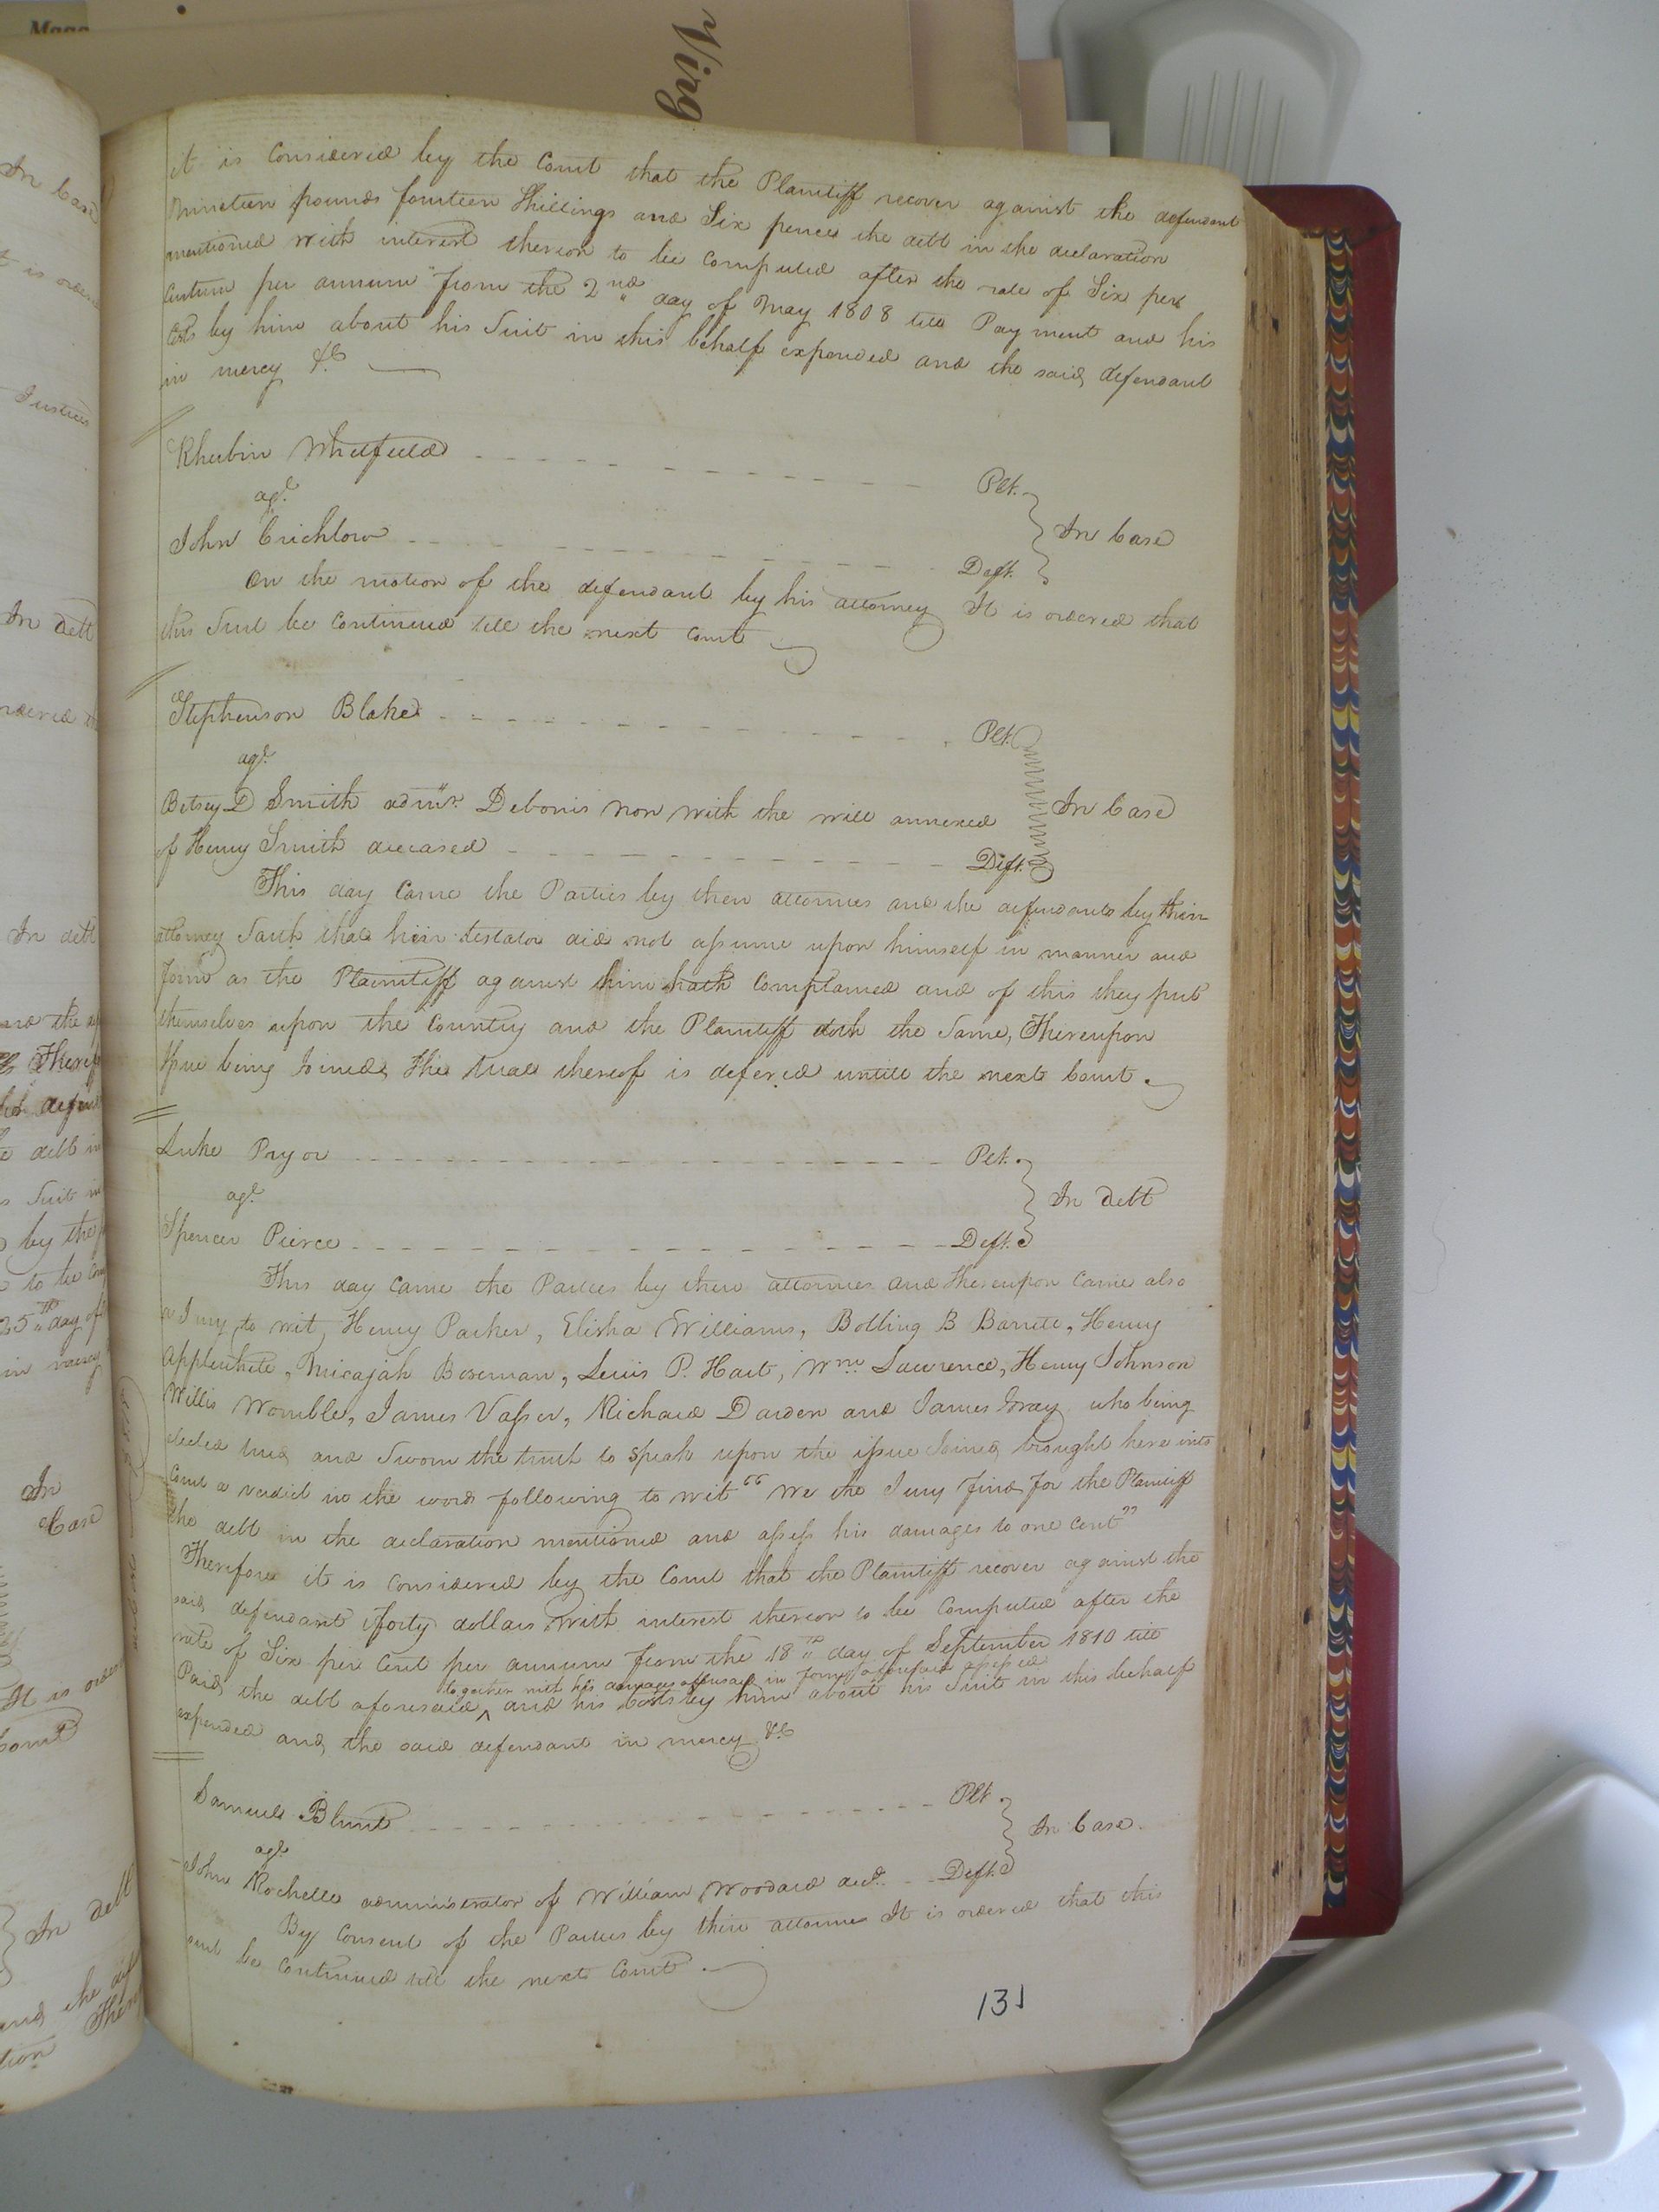 Virg
it is Considered by the Court that the Plaintiff recover against the defendant
Nineteen pounds fourteen Shillings and Six pence the debt in the declaration
mentioned with interest thereon to be Computed after the rate of Six per
Centum per annum from the 2nd day of May 1808 till Payment and his
Costs by him about his Suit in this behalf expended and the said defendant
in mercy &c
Rheubin Whitfield Plt.
agt.
In Case
John Crichlow Deft.
On the motion of the defendant by his attorney It is ordered that
this Suit be Continued till the next Court
Stephenson Blake Plt.
agt.
Betsey D Smith admx. Debonis non with the will annexed
In Case
of Henry Smith deceased Deft.
This day Came the Parties by their attornies and the defendants by their
attorney Saith that their testator did not assume upon himself in manner and
form as the Plaintiff against him hath Complained and of this they put
themselves upon the Country and the Plaintiff doth the Same, Thereupon
Issue being Joined, The trial thereof is defered untill the next Court
Luke Pryor Plt.
agt.
In debt
Spencer Pierce Deft.
This day Came the Parties by their attornies and thereupon Came also
a Jury, to wit, Henry Parker, Elisha Williams, Bolling B Barrett, Henry
Applewhite, Micajah Boseman, Lewis P. Hart, Wm. Lawrence, Henry Johnson
Willis Womble, James Vasser, Richard Darden and James Gray who being
elected tried and Sworn the truth to Speak upon the issue Joined, brought here into
Court a verdict in the words following to wit "We the Jury find for the Plaintiff
the debt in the declaration mentioned and assess his damages to one Cent"
Therefore it is Considered by the Court that the Plaintiff recover against the
said defendant forty dollars with interest thereon to be Computed after the
rate of Six per Cent per annum from the 18th day of September 1810 till
together with his damages aforesaid in form aforesaid assessed
Paid, the debt aforesaid ^ and his Costs by him about his Suit in this behalf
expended and, the said defendant in mercy &c
Samuel Blunt Plt.
agt.
In Case.
John Rochelle administrator of William Woodard decd. Deft.
By Consent of the Parties by their attornies It is ordered that this
suit be Continued till the next Court.
131